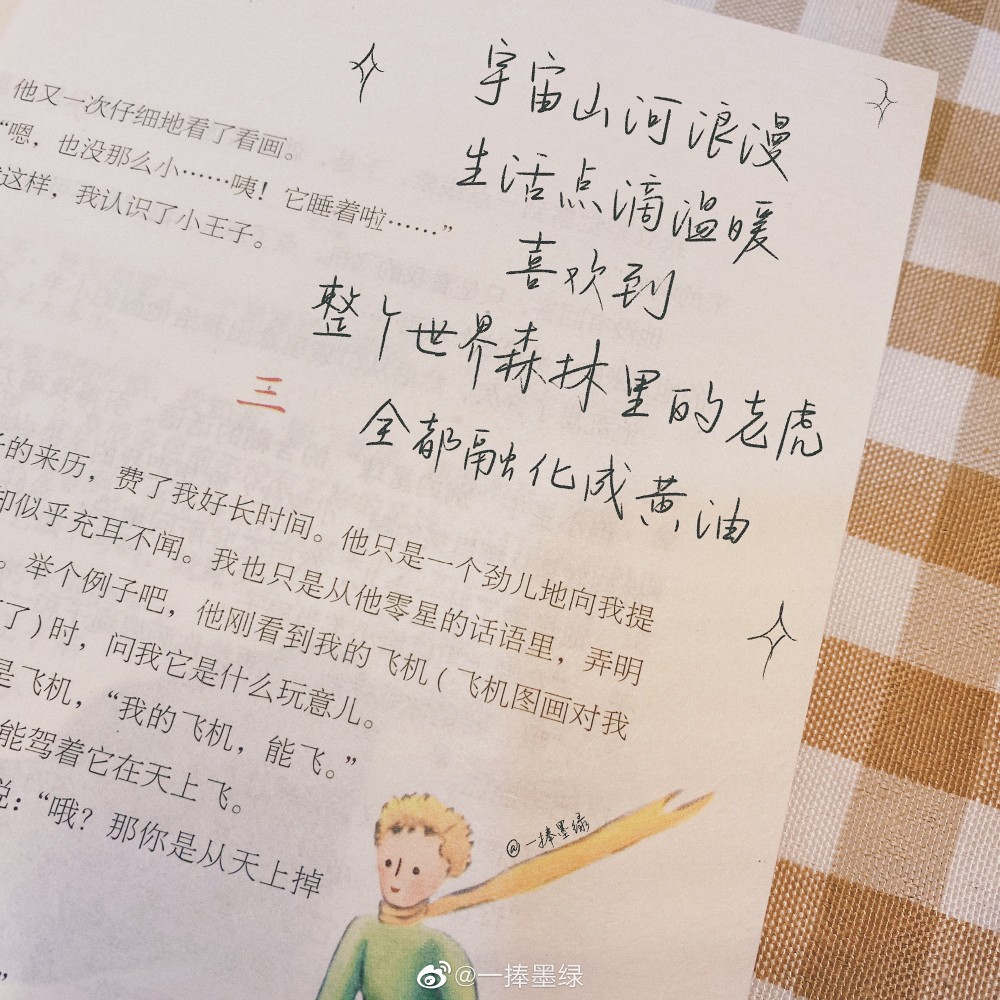 宇宙山河浪漫
生活点滴温暖
喜欢到
整个世界森林里的老虎
全都融化成黄油
他又一次仔细地看了看画。
“嗯，也没那么小……咦！它睡着啦……”
这样，我认识了小王子。
三
子的来历，费了我好长时间。他只是一个劲儿地向我提
却似乎充耳不闻。我也只是从他零星的话语里，弄明
。举个例子吧，他刚看到我的飞机（飞机图画对我
了）时，问我它是什么玩意儿。
是飞机，“我的飞机，能飞。”
能驾着它在天上飞。
说：“哦？那你是从天上掉
”
@一捧墨绿
@一捧墨绿